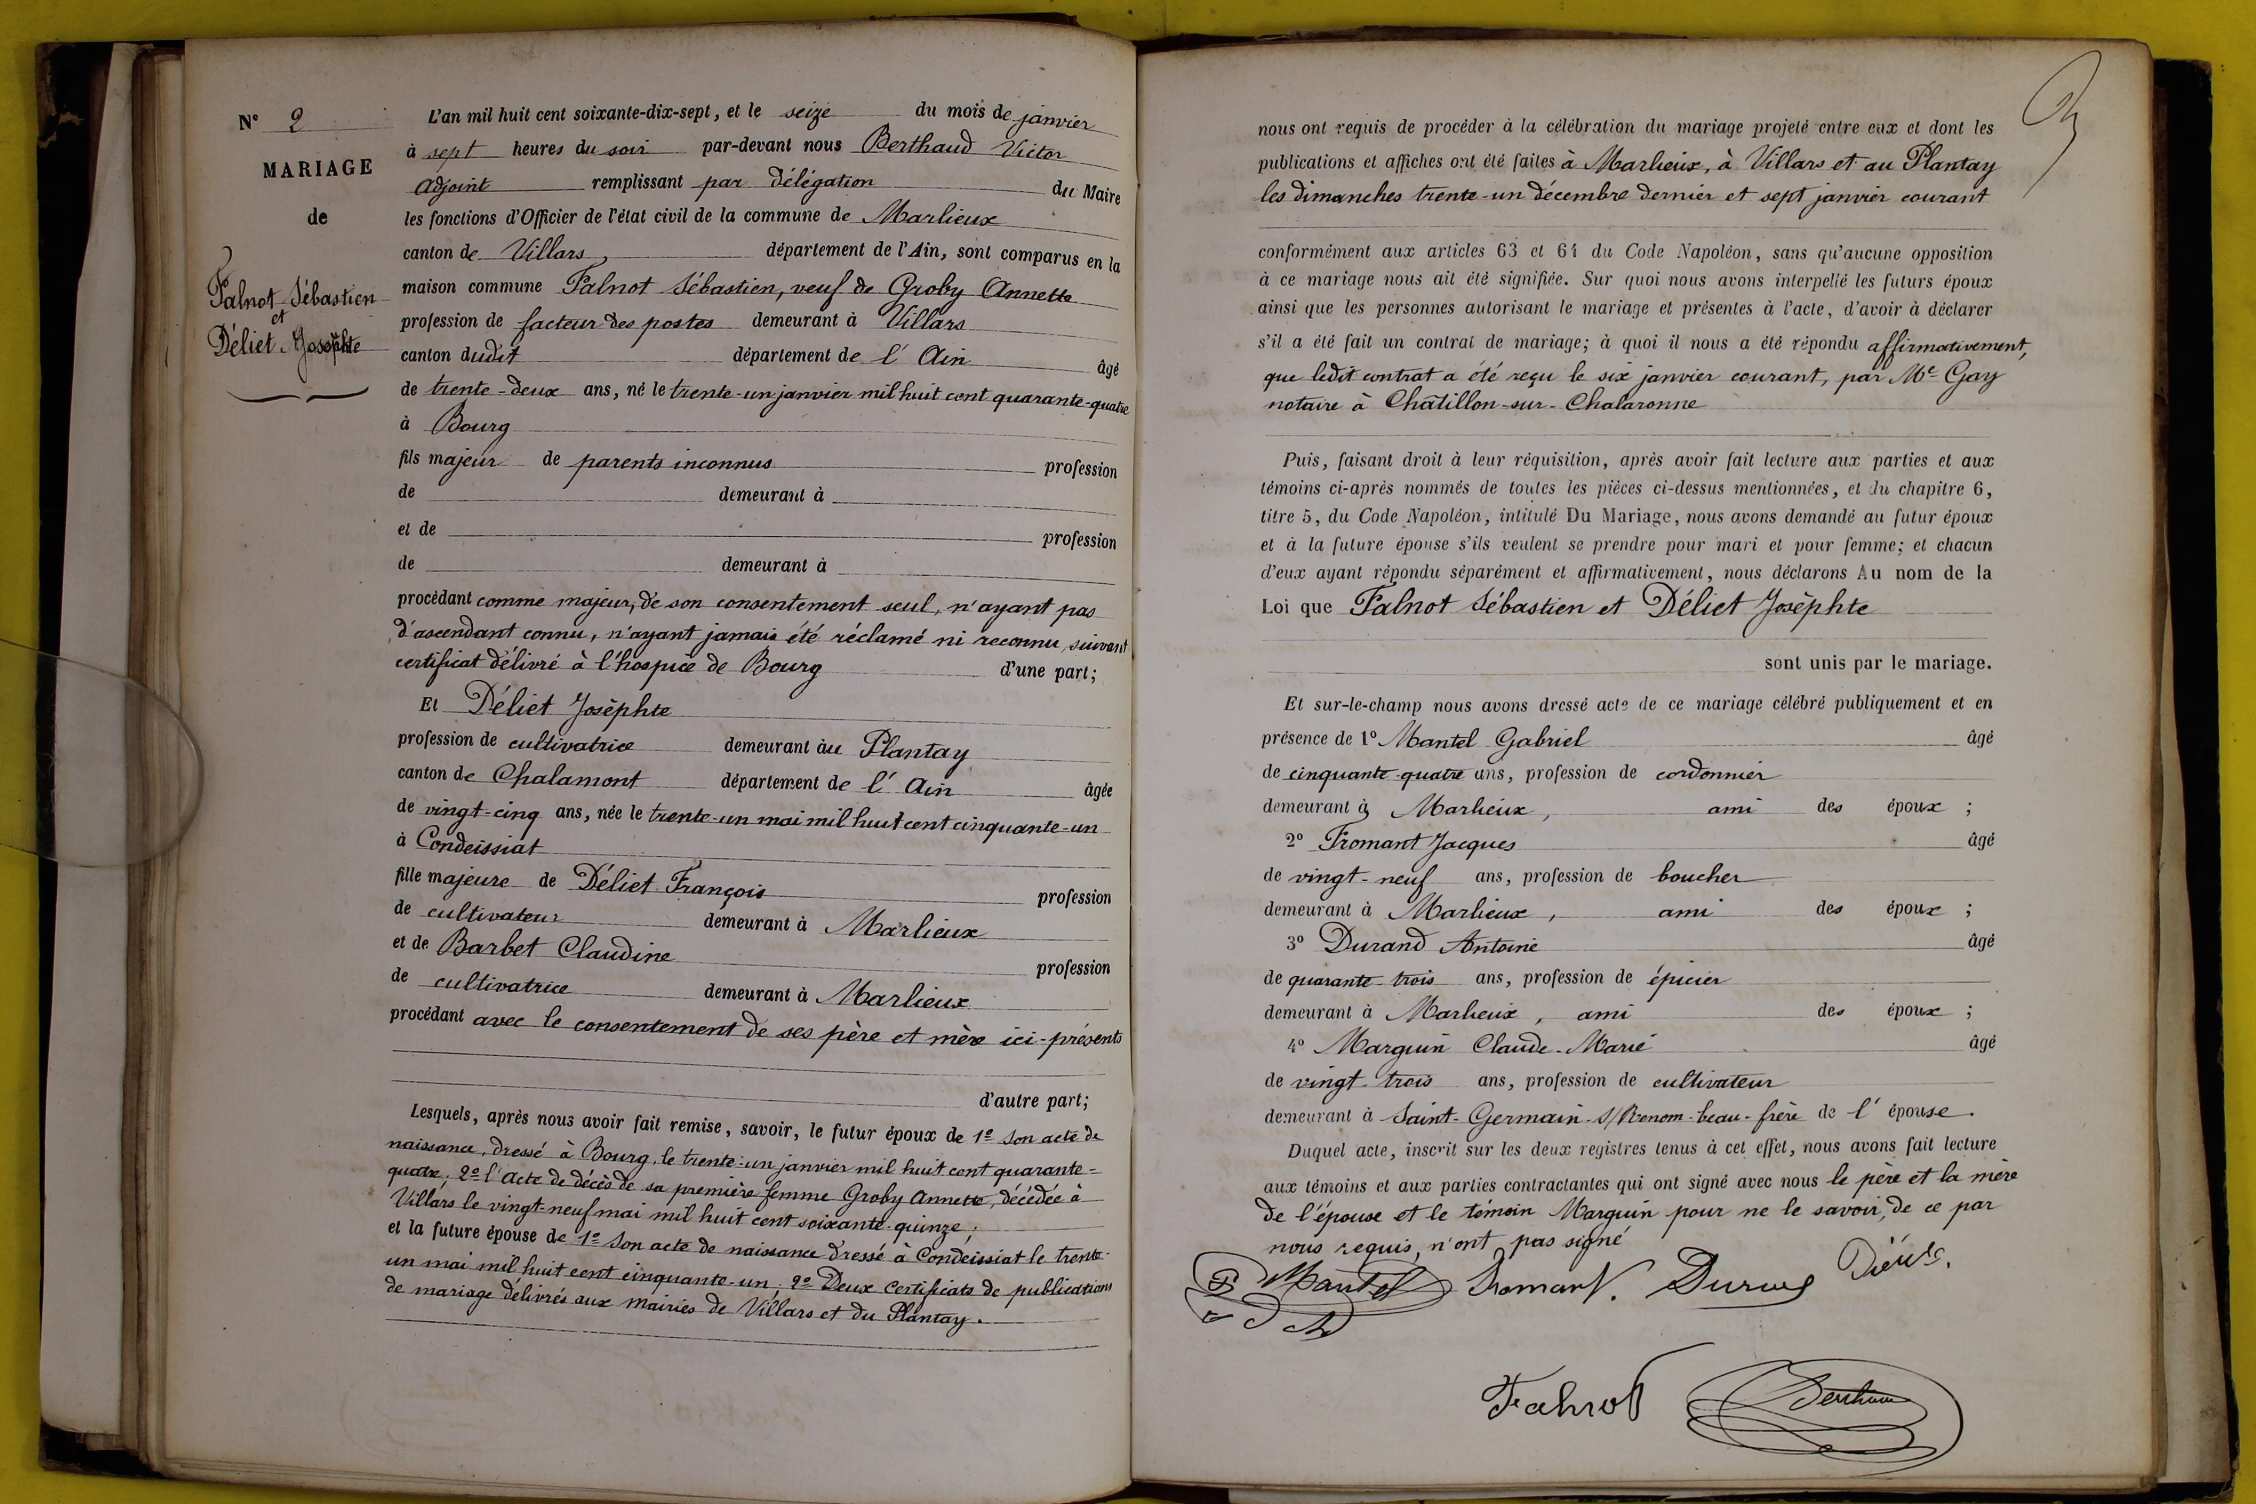 N° 2
MARIAGE
de
Falnot Sébastien
et
Déliet Josèphte
L'an mil huit cent soixante-dix-sept, et le seize du mois de janvier
à sept heures du soir par-devant nous Berthaud Victor
Adjoint remplissant par délégation du Maire
les fonctions d'Officier de l'état civil de la commune de Marlieux
canton de Villars département de l'Ain, sont comparus en la
maison commune Falnot Sébastien, veuf de Groby Annette
profession de facteur des postes demeurant à Villars
canton dudit département de l'Ain âgé
de trente-deux ans, né le trente-un janvier mil huit cent quarante-quatre
à Bourg
fils majeur de parents inconnus profession
de demeurant à
et de profession
de demeurant à
procédant comme majeur, de son consentement seul, n'ayant pas
d'ascendant connu, n'ayant jamais été réclamé ni reconnu, suivant
certificat délivré à l'hospice de Bourg d'une part;
Et Déliet Josèphte
profession de cultivatrice demeurant au Plantay
canton de Chalamont département de l'Ain âgée
de vingt-cinq ans, née le trente-un mai mil huit cent cinquante-un
à Condeissiat
fille majeure de Déliet François profession
de cultivateur demeurant à Marlieux
et de Barbet Claudine profession
de cultivatrice demeurant à Marlieux
procédant avec le consentement de ses père et mère ici-présents
d'autre part;
Lesquels, après nous avoir fait remise, savoir, le futur époux de 1° son acte de
naissance, dressé à Bourg, le trente-un janvier mil huit cent quarante-
quatre; 2° l'acte de décès de sa première femme Groby Annette, décédée à
Villars le vingt-neuf mai mil huit cent soixante-quinze;
et la future épouse de 1° son acte de naissance dressé à Condeissiat le trente-
un mai mil huit cent cinquante-un; 2° Deux certificats de publications
de mariage délivrés aux mairies de Villars et du Plantay.
nous ont requis de procéder à la célébration du mariage projeté entre eux et dont les
publications et affiches ont été faites à Marlieux, à Villars et au Plantay
les dimanches trente-un décembre dernier et sept janvier courant
conformément aux articles 63 et 64 du Code Napoléon, sans qu'aucune opposition
à ce mariage nous ait été signifiée. Sur quoi nous avons interpellé les futurs époux
ainsi que les personnes autorisant le mariage et présentes à l'acte, d'avoir à déclarer
s'il a été fait un contrat de mariage; à quoi il nous a été répondu affirmativement,
que ledit contrat a été reçu le six janvier courant, par Me Gay
notaire à Châtillon-sur-Chalaronne
Puis, faisant droit à leur réquisition, après avoir fait lecture aux parties et aux
témoins ci-après nommés de toutes les pièces ci-dessus mentionnées, et du chapitre 6,
titre 5, du Code Napoléon, intitulé Du Mariage, nous avons demandé au futur époux
et à la future épouse s'ils veulent se prendre pour mari et pour femme; et chacun
d'eux ayant répondu séparément et affirmativement, nous déclarons Au nom de la
Loi que Falnot Sébastien et Déliet Josèphte
sont unis par le mariage.
Et sur-le-champ nous avons dressé acte de ce mariage célébré publiquement et en
présence de 1° Mantel Gabriel âgé
de cinquante-quatre ans, profession de cordonnier
demeurant à Marlieux, ami des époux;
2° Fromant Jacques âgé
de vingt-neuf ans, profession de boucher
demeurant à Marlieux, ami des époux;
3° Durand Antoine âgé
de quarante-trois ans, profession de épicier
demeurant à Marlieux, ami des époux;
4° Marguin Claude-Marie âgé
de vingt-trois ans, profession de cultivateur
demeurant à Saint-Germain-s/Renom-beau-frère de l'épouse.
Duquel acte, inscrit sur les deux registres tenus à cet effet, nous avons fait lecture
aux témoins et aux parties contractantes qui ont signé avec nous le père et la mère
de l'épouse et le témoin Marguin pour ne le savoir, de ce par
nous requis, n'ont pas signé
Mantel Fromant. Durand
Falnot Berthaud